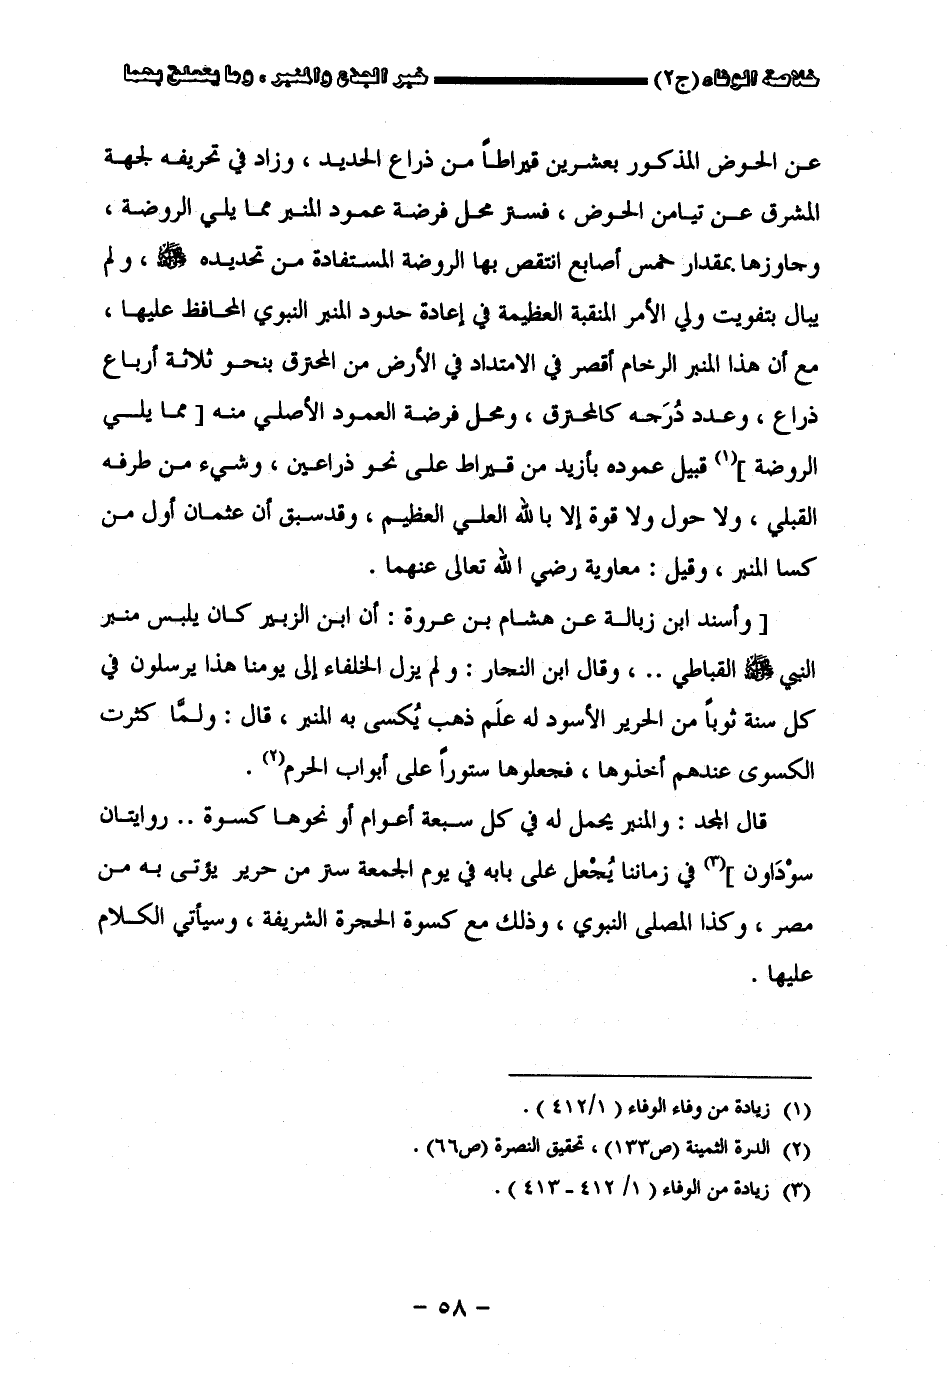 خلاصة الوفاء (ج٢) خبر الجذع والمنبر ، وما يتعلق بهما
عن الحوض المذكور بعشرين قيراطاً من ذراع الحديد ، وزاد في تحريفه لجهة
المشرق عن تيامن الحوض ، فستر محل فرضة عمود المنبر مما يلي الروضة ،
وجاوزها بمقدار خمس أصابع انتقص بها الروضة المستفادة من تحديده ﷺ ، و لم
يبال بتفويت ولي الأمر المنقبة العظيمة في إعادة حدود المنبر النبوي المحافظ عليها ،
مع أن هذا المنبر الرخام أقصر في الامتداد في الأرض من المحترق بنحو ثلاثة أرباع
ذراع ، وعدد دُرَجه كالمحترق ، ومحل فرضة العمود الأصلي منه [ مما يلي
الروضة ](١) قبيل عموده بأزيد من قيراط على نحو ذراعين ، وشيء من طرفه
القبلي ، ولا حول ولا قوة إلا بالله العلي العظيم ، وقدسبق أن عثمان أول من
كسا المنبر ، وقيل : معاوية رضي الله تعالى عنهما .
[ وأسند ابن زبالة عن هشام بن عروة : أن ابن الزبير كان يلبس منبر
النبي ﷺ القباطي .. ، وقال ابن النجار : و لم يزل الخلفاء إلى يومنا هذا يرسلون في
كل سنة ثوباً من الحرير الأسود له علَم ذهب يُكسى به المنبر ، قال : ولمَّا كثرت
الكسوى عندهم أخذوها ، فجعلوها ستوراً على أبواب الحرم(٢) .
قال المجد : والمنبر يحمل له في كل سبعة أعوام أو نحوها كسوة .. روايتان
سوْدَاون ](٣) في زماننا يُجْعل على بابه في يوم الجمعة ستر من حرير يؤتى به من
مصر ، وكذا المصلى النبوي ، وذلك مع كسوة الحجرة الشريفة ، وسيأتي الكلام
عليها .
(١) زيادة من وفاء الوفاء ( ٤١٢/١ ) .
(٢) الدرة الثمينة (ص١٣٣) ، تحقيق النصرة (ص٦٦) .
(٣) زيادة من الوفاء ( ١/ ٤١٢ – ٤١٣ ) .
– ٥٨ –